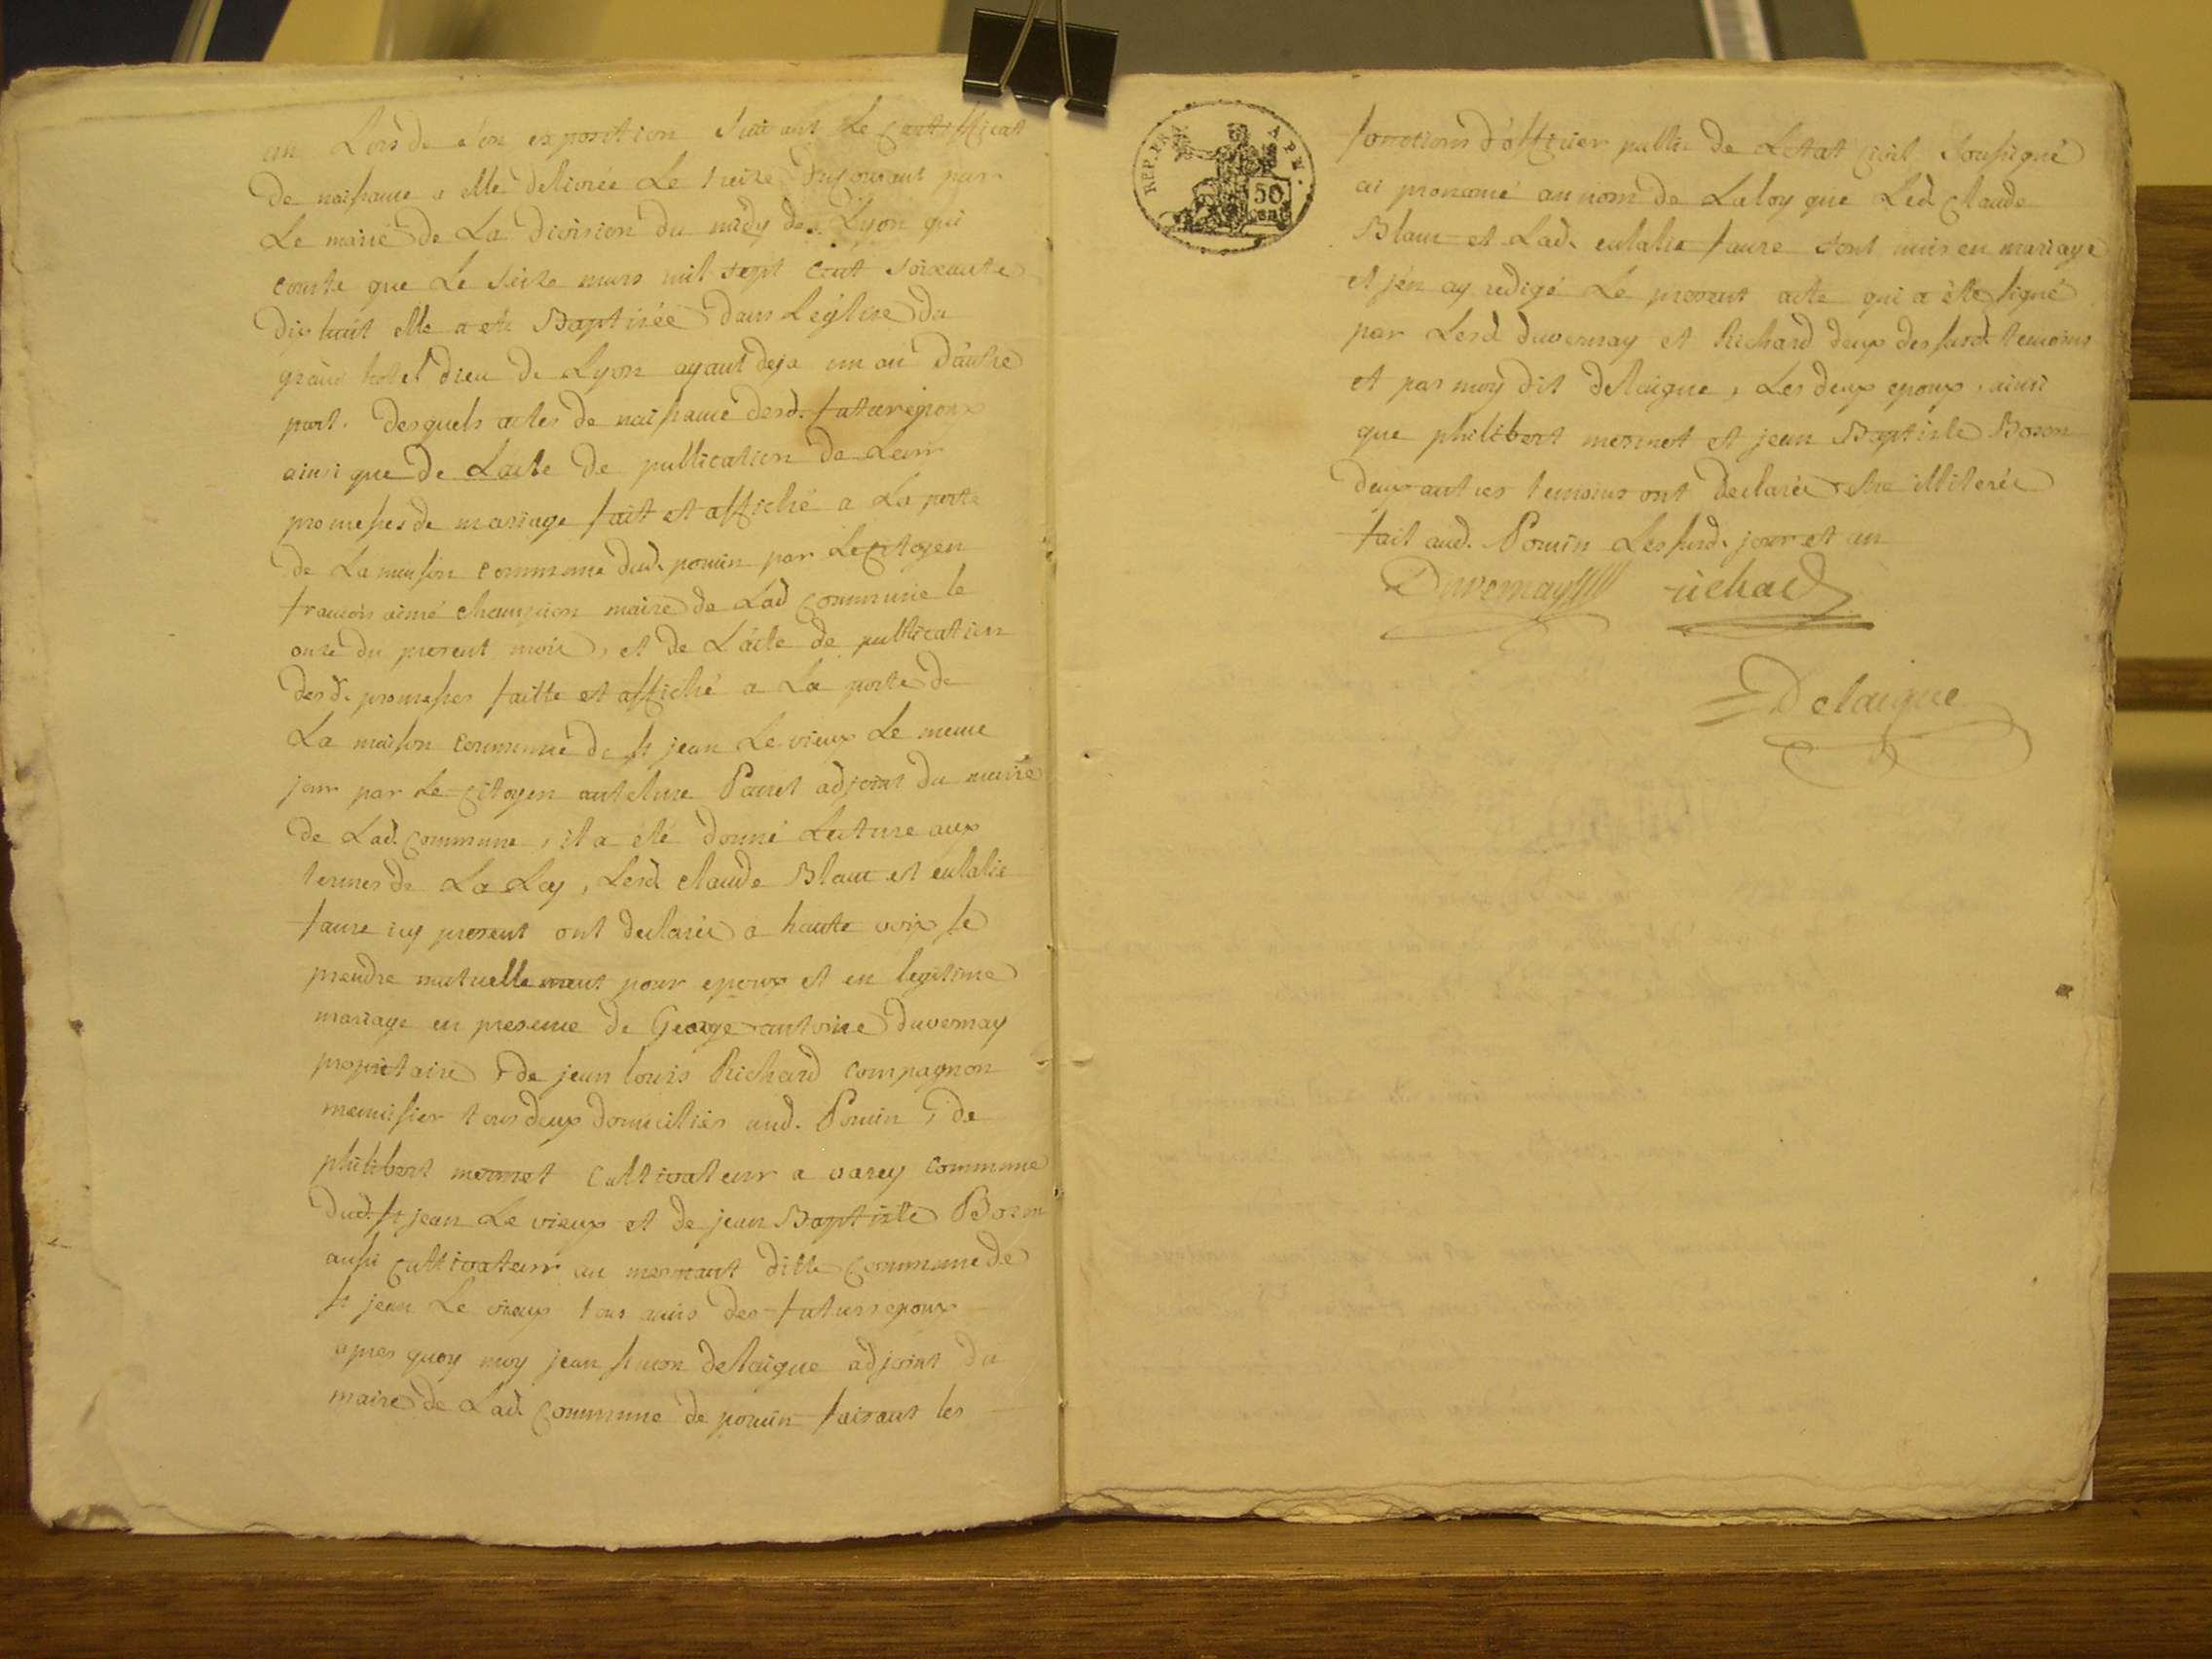 an Lors de son exposition suivant Le Certifficat
de naissance a elle delivrée Le treize du courant par
Le maire de La division du midy de Lyon qui
conste que Le seize mars mil sept cent soixante
dix huit elle a ete Baptisée dans Leglise du
grand hotel dieu de Lyon ayant deja un an d'autre
part. desquels actes de naissance desd. futur epoux
ainsi que de Lacte de publication de Leur
promesses de mariage fait et affiché a La porte
de La maison commune dud. poncin par Le Citoyen
francois aimé champion maire de Lad Commune le
onze du present mois, et de L'acte de publication
desd. promesses faitte et affiché a La porte de
La maison commune de st jean Le vieux Le meme
jour par Le Citoyen antelme Pauret adjoint du maire
de Lad. Commune, il a eté donné Lecture aux
termes de La Loy, Lesd. claude Blanc et eulalie
faure icy present ont declarée a haute voix se
prendre mutuellement pour epoux et en legitime
mariage en presence de George antoine duvernay
proprietaire, de jean louis Richard compagnon
menuisier tous deux domiciliés aud. Poncin, de
philibert mermet Cultivateur a varey commune
dud. st jean Le vieux et de jean Baptiste Bozon
aussi Cultivateur au mernant ditte Commune de
st jean Le vieux tous amis des futurs epoux
apres quoy moy jean simon delaigue adjoint du
maire de Lad. Commune de poncin faisant les
REP. FRA.
50
CEN.
fonctions d'officier public de Letat Civil soussigné
ai pronomé au nom de La loy que Led. Claude
Blanc et Lad. eulalie faure sont unis en mariage
et j'en ay redigé Le present acte qui a été signé
par Lesd. duvernay et Richard deux des susd. temoins
et par moy dit delaigue, Les deux epoux, ainsi
que philibert mermet et jean Baptiste Bozon
deux autres temoins ont declarée etre illiterée
fait aud. Poncin Les susd. jour et an
Duvernay richard
Delaigue